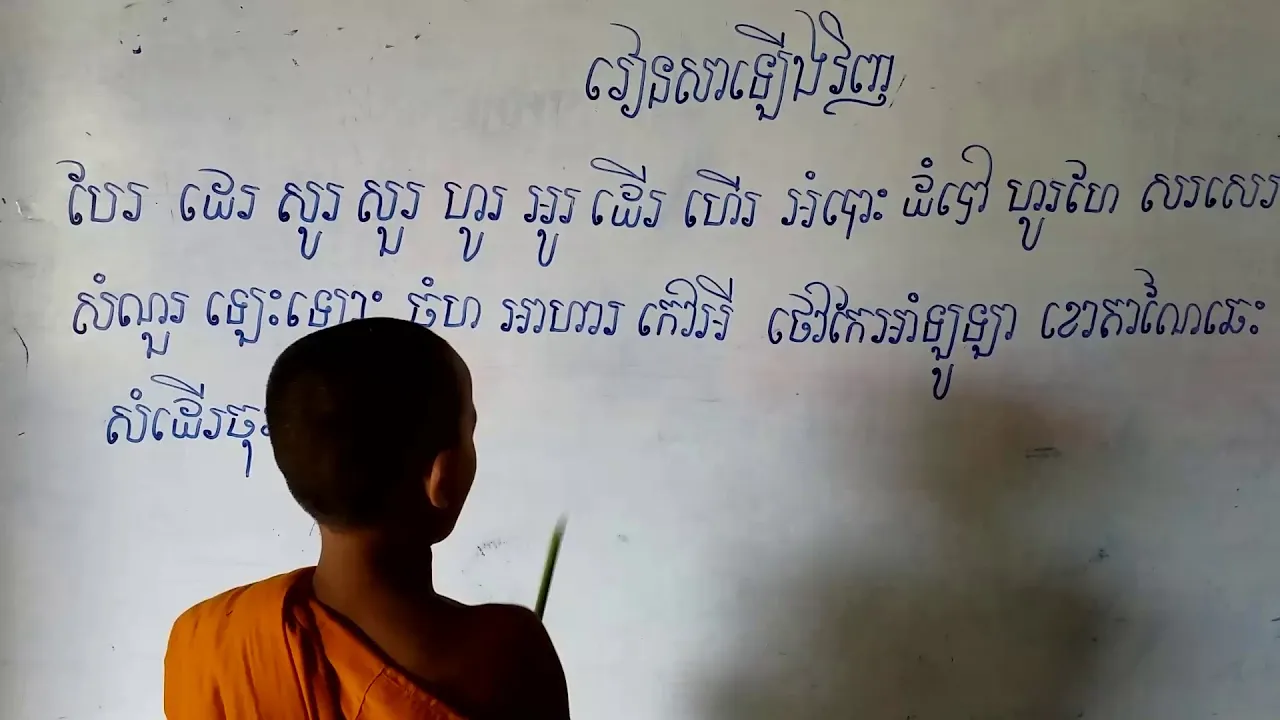 រៀនសាឡើងវិញ
បែរ ដេរ សូរ សួរ ហូរ អូរ ដើរ ហើរ អំបោះ ដំបៅ ហូរហែ សរសេរ
សំណួរ ឡេះឡោះ ចំហ អាហារ កៅអី ថៅកែអាំឡូឡា ខោតាណៃឆេះ
សំដើរចុះ